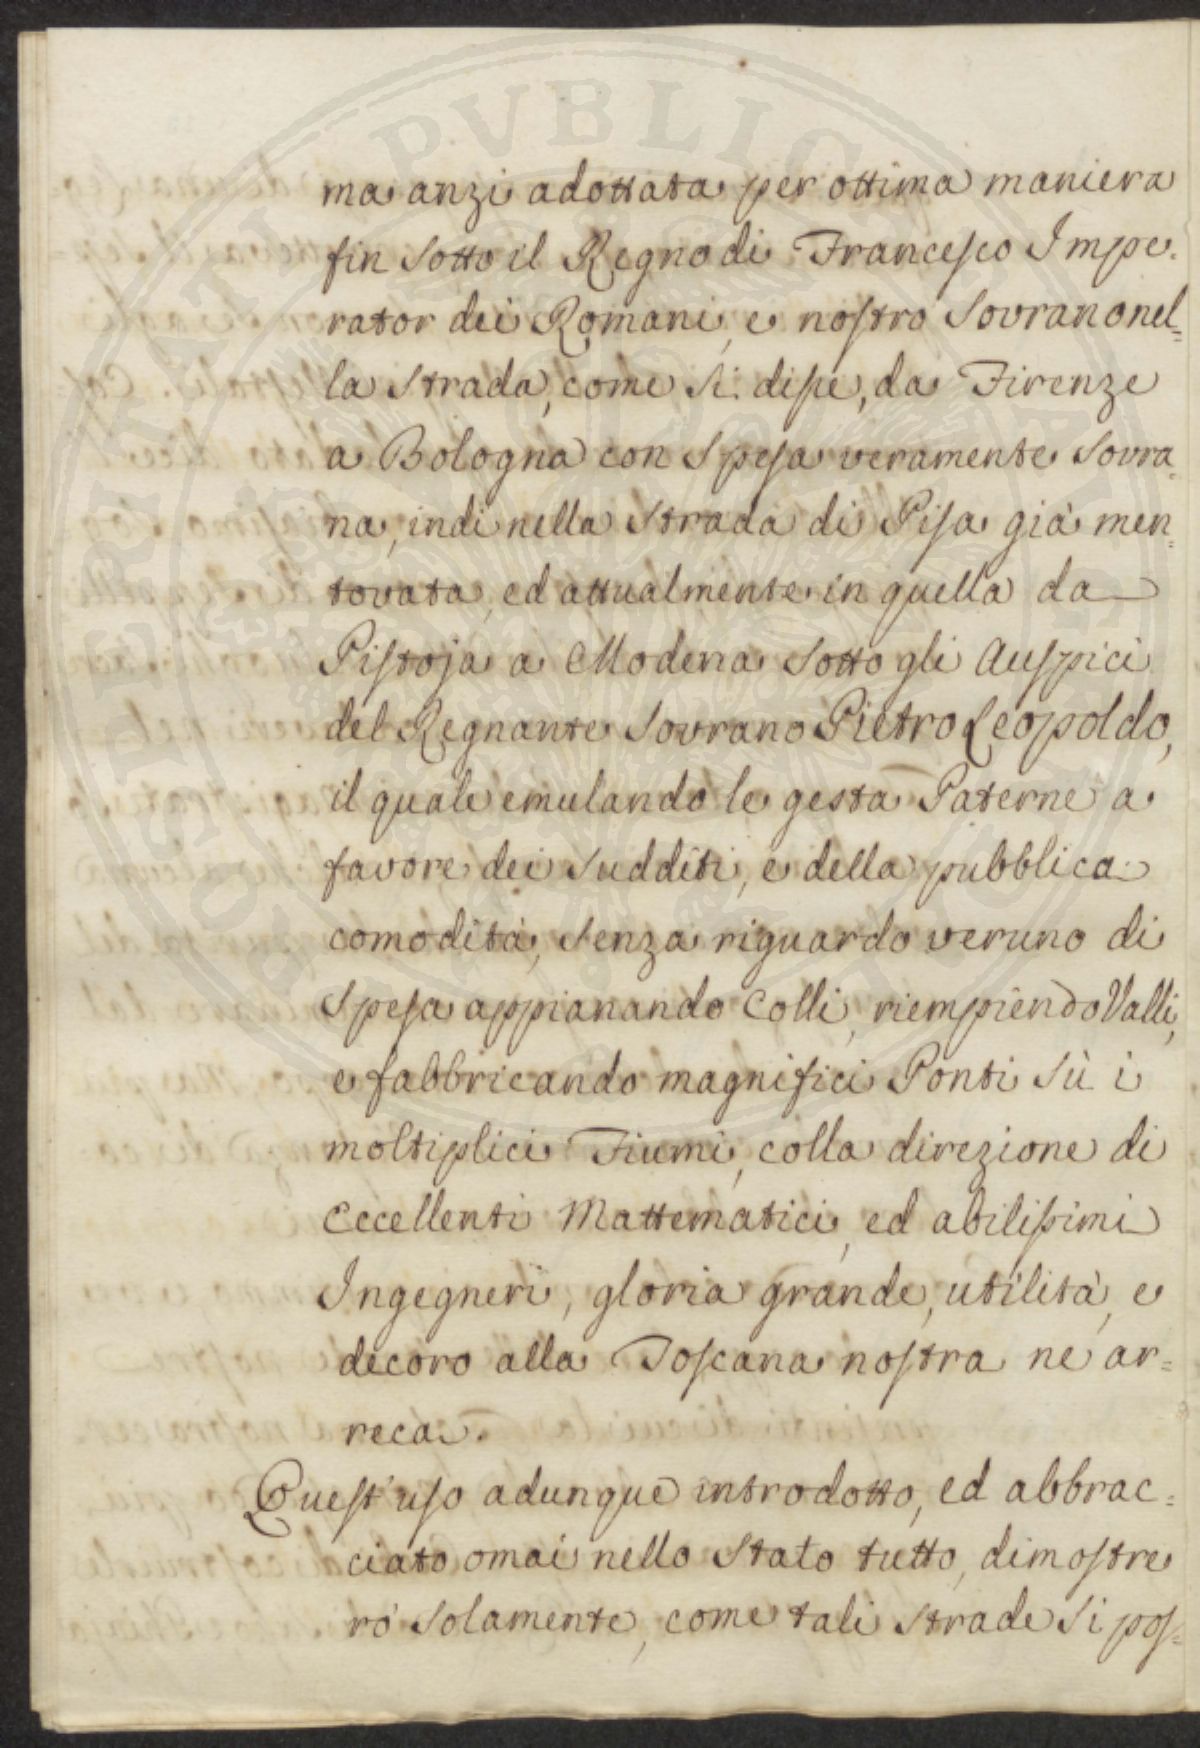 ma anzi adottata per ottima maniera
fin sotto il Regno di Francesco Impe-
rator dei Romani, e nostro Sovrano nel=
la Strada, come si disse, da Firenze
a Bologna con Spesa veramente Sovra
na, indi nella Strada di Pisa già men=
tovata, ed attualmente in quella da
Pistoja a Modena sotto gli Auspici
del Regnante Sovrano Pietro Leopoldo,
il quale emulando le gesta Paterne a
favore dei Sudditi, e della pubblica
comodità, senza riguardo veruno di
Spesa appianando Colli, riempiendo Valli,
e fabbricando magnifici Ponti sù i
moltiplici Fiumi, colla direzione di
Eccellenti Mattematici, ed abilissimi
Ingegneri, gloria grande, utilità, e
decoro alla Toscana nostra ne ar=
reca.
Quest'uso adunque introdotto, ed abbrac=
ciato omai nello Stato tutto, dimostre
rò solamente, come tali Strade si pos=